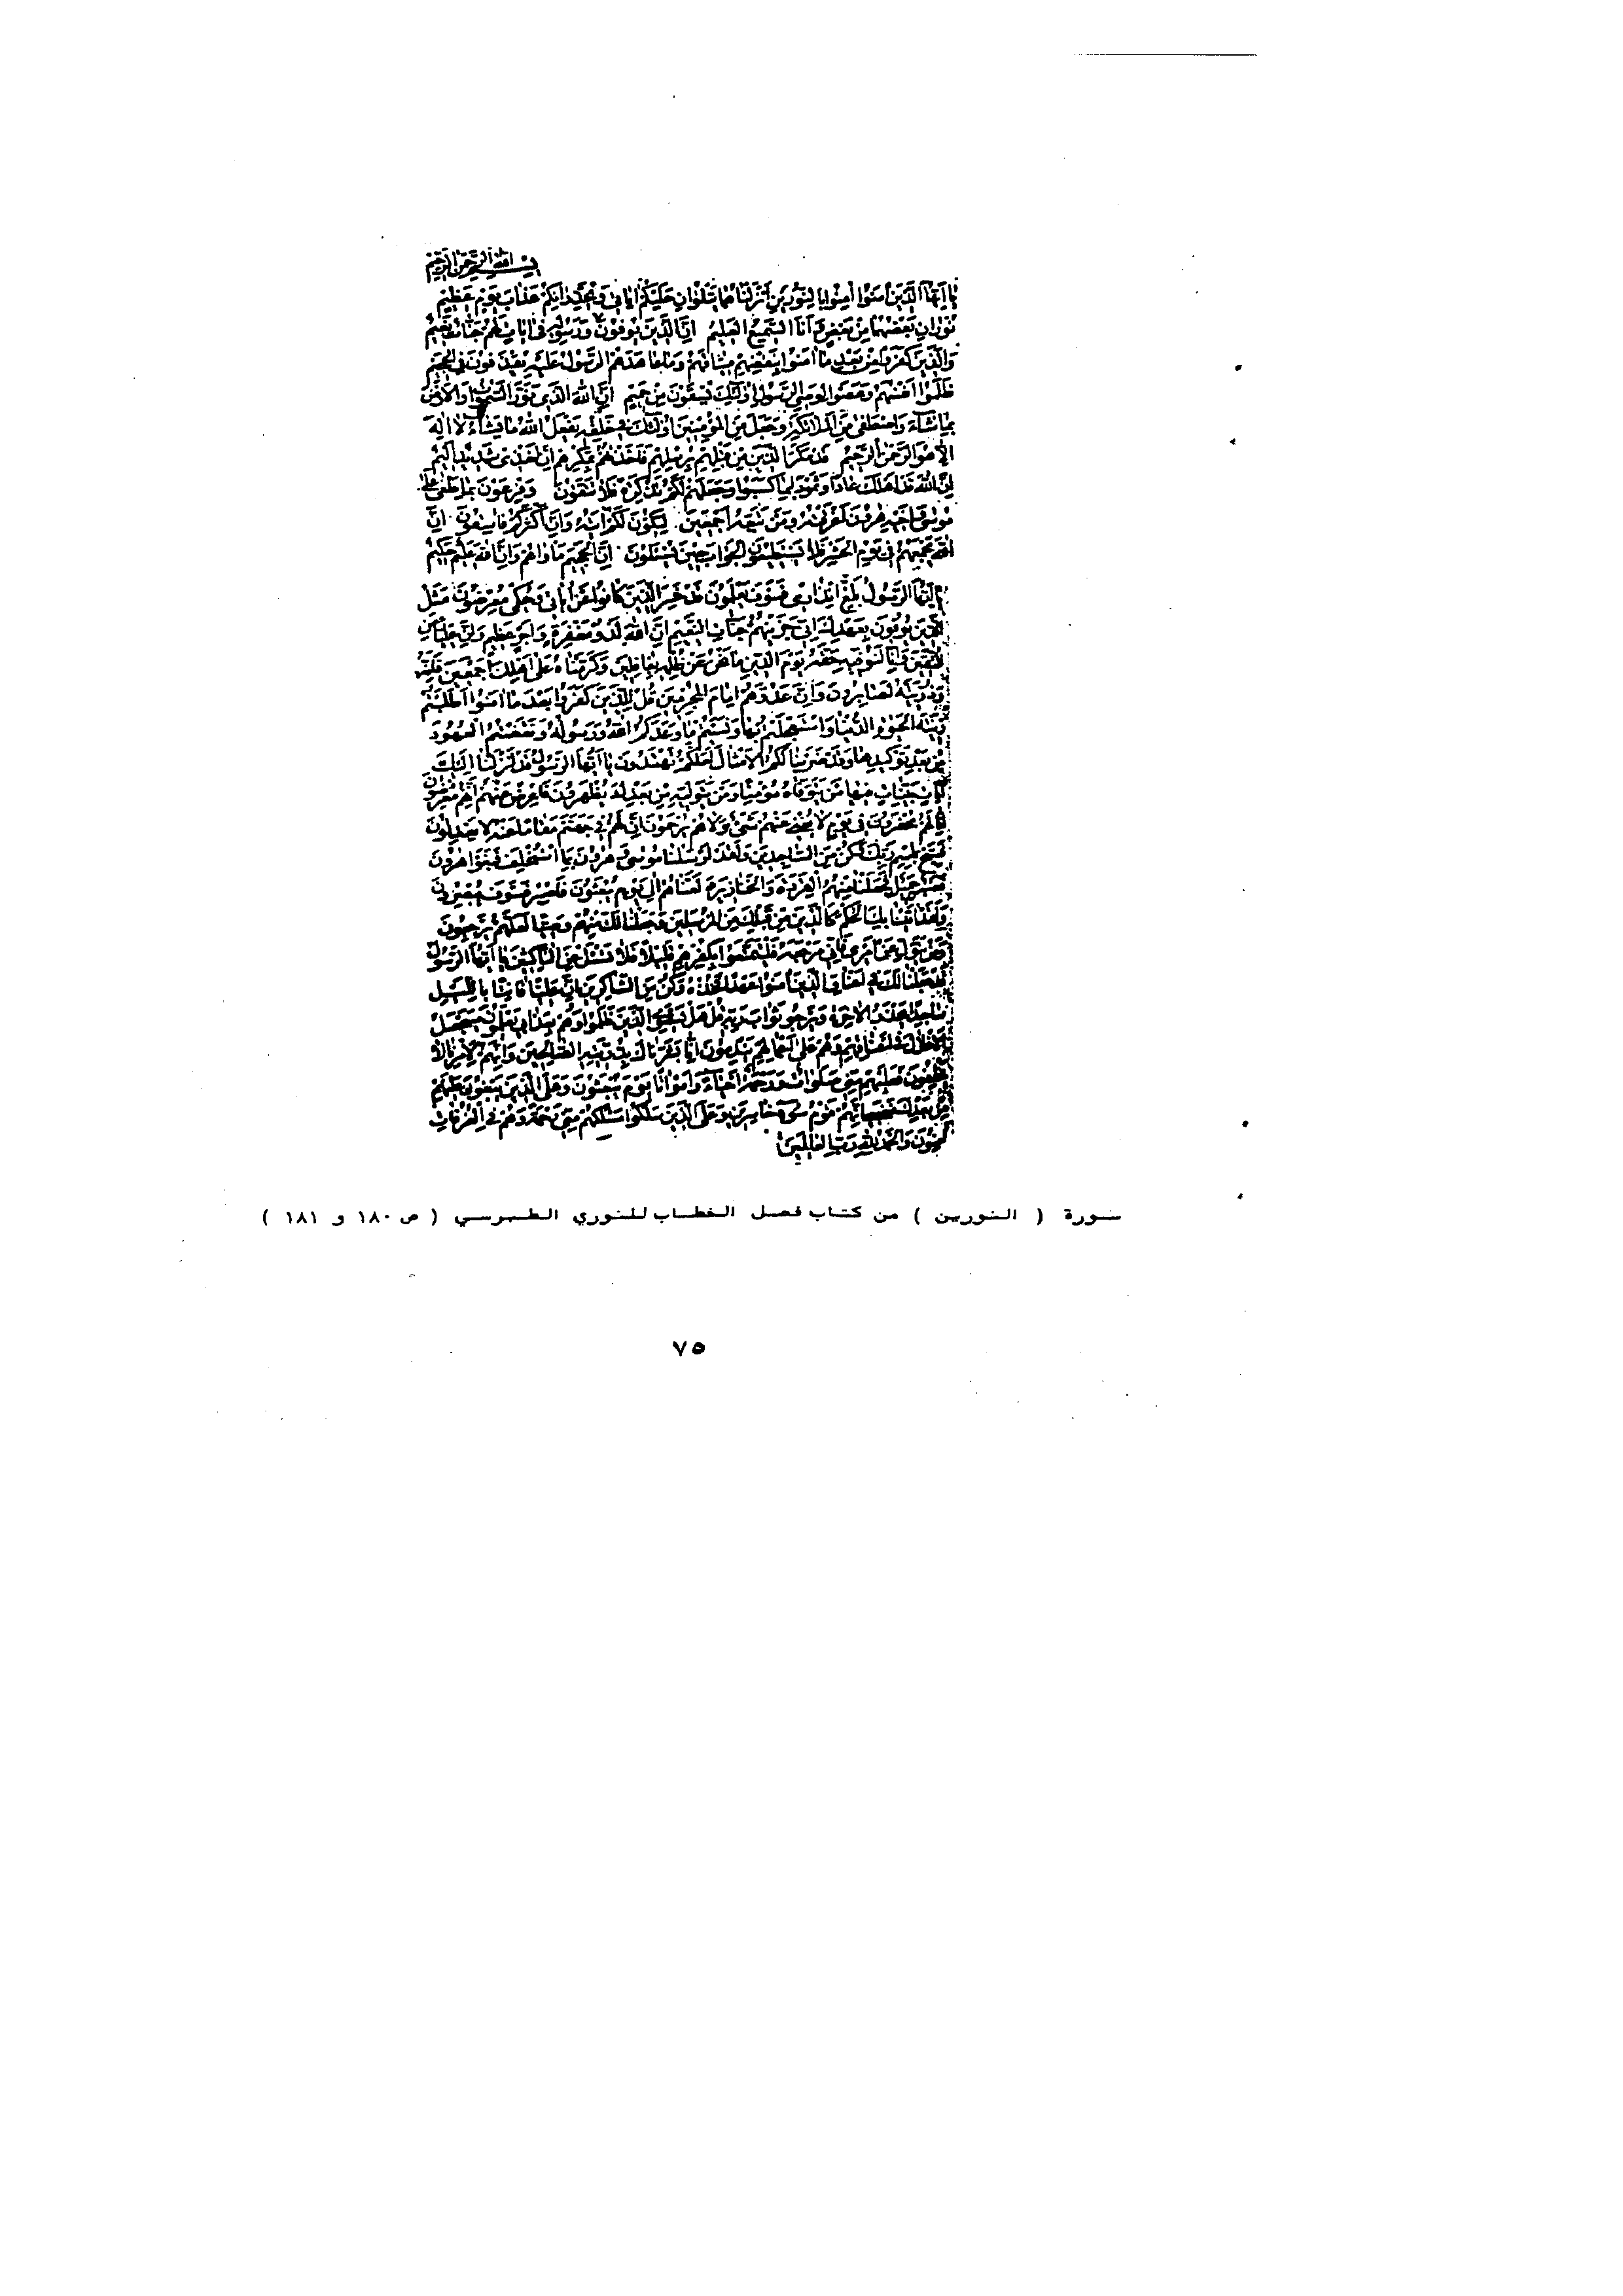 بسم الله الرحمن الرحيم
يا أيها الذين آمنوا آمنوا بالنورين أنزلناهما يتلوان عليكم آياتي ويحذرانكم عذاب يوم عظيم
نوران بعضهما من بعض وأنا السميع العليم إن الذين يوفون ورسوله في آيات لهم جنات نعيم
والذين كفروا من بعد ما آمنوا بنقضهم ميثاقهم وما عاهدهم الرسول عليه يقذفون في الجحيم
ظلموا أنفسهم وعصوا الوصي الرسول أولئك يسقون من حميم إن الله الذي نور السموات والأرض
بما شاء واصطفى من الملائكة وجعل من المؤمنين أولئك في خلقه يفعل الله ما يشاء لا إله
إلا هو الرحمن الرحيم قد مكر الذين من قبلهم برسلهم فأخذتهم بمكرهم إن أخذي شديد أليم
إن الله قد أهلك عادا وثمود بما كسبوا وجعلهم لكم تذكرة فلا تتقون وفرعون بما طغى على
موسى وأخيه هرون أغرقته ومن تبعه أجمعين ليكون لكم آية وإن أكثركم فاسقون إن
الله يجمعهم في يوم الحشر فلا يستطيعون الجواب حين يسئلون إن الجحيم مأواهم وإن الله عليم حكيم
يا أيها الرسول بلغ إنذاري فسوف يعلمون قد خسر الذين كانوا عن آياتي وحكمي معرضون مثل
الذين يوفون بعهدك إني جزيتهم جنات النعيم إن الله لذو مغفرة وأجر عظيم وإن عليا من
المتقين وإنا لنوفيه حقه يوم الدين ما نحن عن ظلمه بغافلين وكرمناه على أهلك أجمعين فإنه
وذريته لصابرون وأن عدوهم إمام المجرمين قل للذين كفروا بعد ما آمنوا أطلبتم
زينة الحيوة الدنيا واستعجلتم بها ونسيتم ما وعدكم الله ورسوله ونقضتم العهود
من بعد توكيدها وقد ضربنا لكم الأمثال لعلكم تهتدون يا أيها الرسول قد أنزلنا إليك
آيات بينات فيها من يتوفاه مؤمنا ومن يتوليه من بعدك يظهرون فأعرض عنهم إنهم معرضون
إنا لهم محضرون في يوم لا يغني عنهم شيء ولا هم يرحمون إن لهم في جهنم مقاما عنه لا يعدلون
فسبح باسم ربك وكن من الساجدين ولقد أرسلنا موسى وهرون بما استخلف فبغوا هرون
فصبر جميل فجعلنا منهم القردة والخنازير ولعناهم إلى يوم يبعثون فاصبر فسوف يبصرون
ولقد آتينا بك الحكم كالذين من قبلك من المرسلين وجعلنا لك منهم وصيا لعلهم يرجعون
ومن يتولى عن أمري فإني مرجعه فليتمتعوا بكفرهم قليلا فلا تسئل عن الناكثين يا أيها الرسول
قد جعلنا لك في أعناق الذين آمنوا عهدا فخذه وكن من الشاكرين إن عليا قانتا بالليل
ساجدا يحذر الآخرة ويرجو ثواب ربه قل هل يستوي الذين ظلموا وهم بعذابي يعلمون سيجعل
الأغلال في أعناقهم وهم على أعمالهم يندمون إنا بشرناك بذريته الصالحين وإنهم لأمرنا لا
يخلفون فعليهم مني صلوات ورحمة أحياء وأمواتا يوم يبعثون وعلى الذين يبغون عليهم
من بعدك غضبي إنهم قوم سوء خاسرين وعلى الذين سلكوا مسلكهم مني رحمة وهم في الغرفات
آمنون والحمد لله رب العالمين
سورة ( النورين ) من كتاب فصل الخطاب للنوري الطبرسي ( ص ١٨٠ و ١٨١ )
٧٥